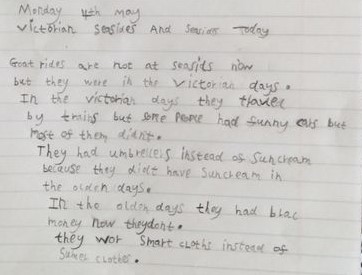 Monday 4th may
Victorian Seasides And Seasides Today
Goat rides are not at seasids now
but they were in the Victorian days.
In the victorian days they travel
by trains but some People had funny cars but
Most of them didnt.
They had umbrellers instead of Suncream
because they didt have Suncream in
the olden days.
In the olden days they had blac
money now theydont.
they wor Smart cloths instead of
clothes.